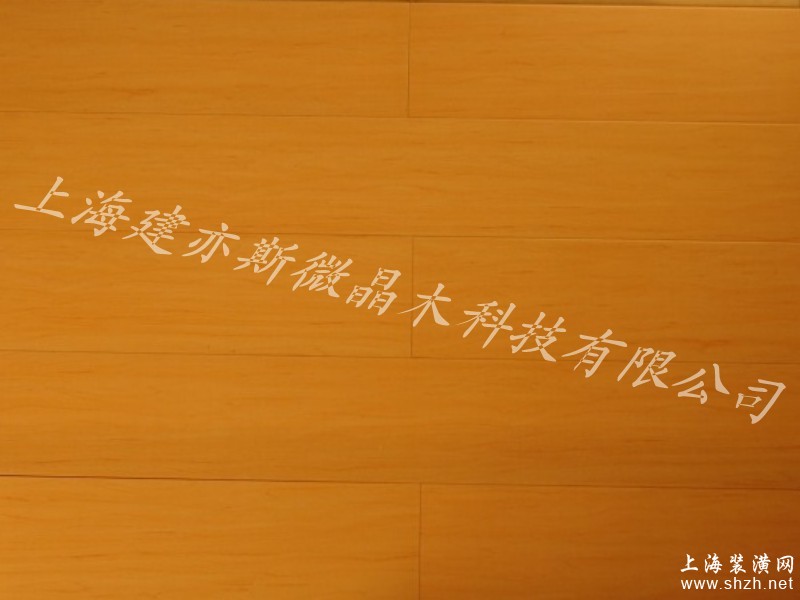 上海建亦斯微晶木科技有限公司
上海装潢网
www.shzh.net